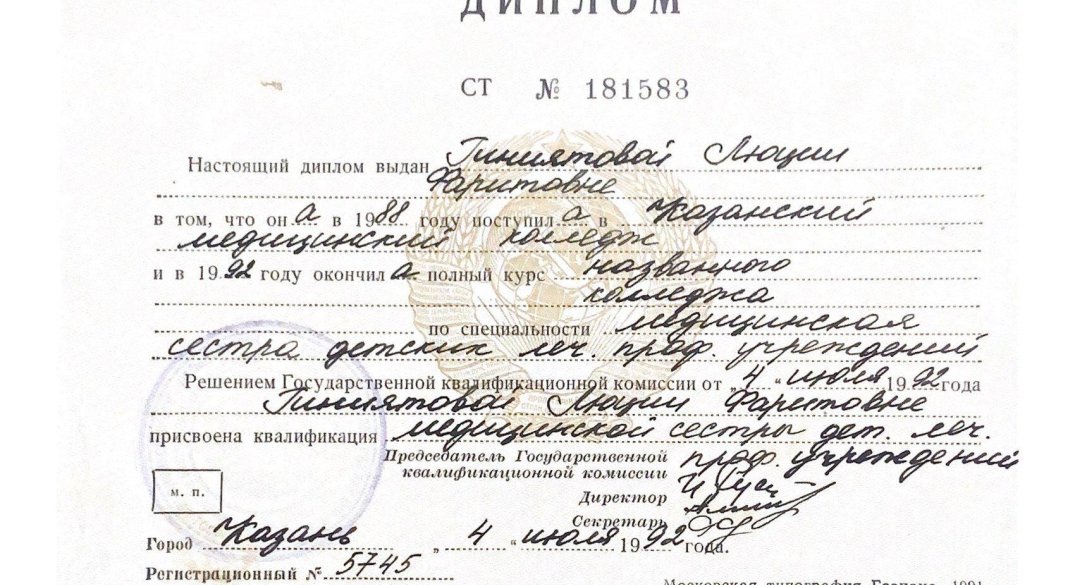 ДИПЛОМ
СТ № 181583
Настоящий диплом выдан Гиниятовой Люции
Фаритовне
в том, что он а в 1988 году поступил а в Казанский
медицинский колледж
и в 1992 году окончил а полный курс названного
колледжа
по специальности медицинская
сестра детских леч. проф. учреждений
Решением Государственной квалификационной комиссии от „4“ июля 1992 года
Гиниятовой Люции Фаритовне
присвоена квалификация медицинской сестры дет. леч.
Председатель Государственной проф. учреждений
квалификационной комиссии
м. п.
Директор
Секретарь
Город Казань „4“ июля 1992 года.
Регистрационный № 5745
Московская типография Гознака. 1991.